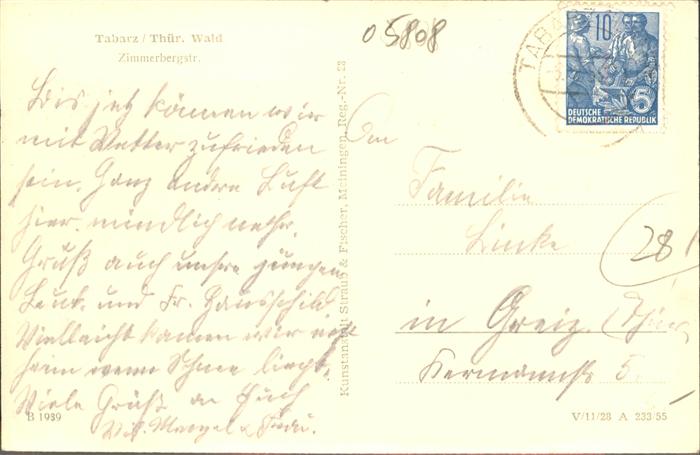 Tabarz / Thür. Wald
Zimmerbergstr.
05808
TABARZ
10
5
DEUTSCHE
DEMOKRATISCHE REPUBLIK
Bis jetz können wir
mit Wetter zufrieden
sein. Ganz andre Luft
hier. mündlich mehr.
Gruß auch unsre jungen
Leut. und Fr. Hausschild
Vielleicht kamen wir erst
heim wenn Schnee liecht.
Viele Grüße an Euch
u. Frau.
B 1939
Kunstanstalt Straub & Fischer, Meiningen, Reg.-Nr. 28
An
Familie
Linke
28
in Greiz. (Thür.
Hermannstr 5.
V/11/28 A 233/55